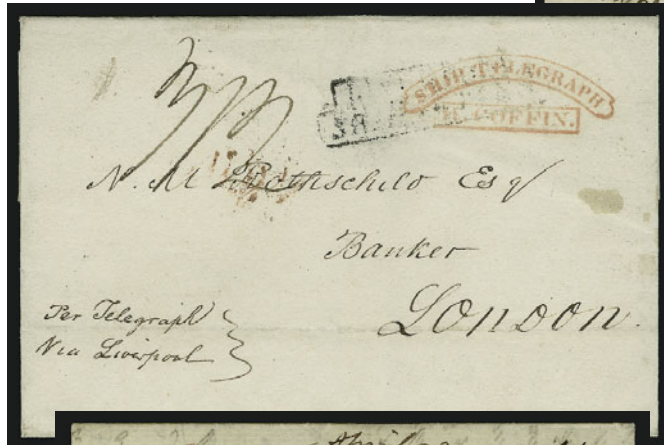 SHIP TELEGRAPH
H. COFFIN.
N. M Rothschild Esq
Banker
London.
Per Telegraph
Via Liverpool